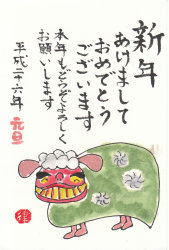 新年
あけまして
おめでとう
ございます
本年もどうぞよろしく
お願いします
平成二十六年
元旦